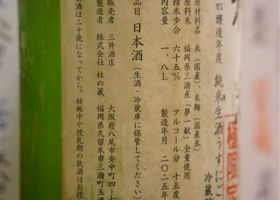 四醸造年度 純米生酒うすにごり
極限定
冷蔵
原材料名 米（国産）、米麹（国産米）
原料米 福岡県三潴産「夢一献」全量使用
精米歩合 六十五％ アルコール分 十五度
内容量 1.8L 製造年月 二〇二五年
品目 日本酒（生酒・冷蔵庫に保管してください）
販売者 三井酒店 大阪府八尾市安中町四
製造者 株式会社 杜の蔵 福岡県久留米市三潴町玉満
酒は二十歳になってから。妊娠中や授乳期の飲酒はお控